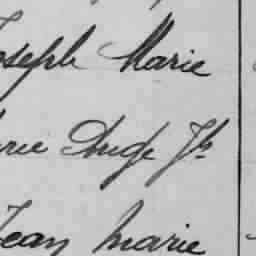 Joseph Marie
Ange Jh
Jean Marie